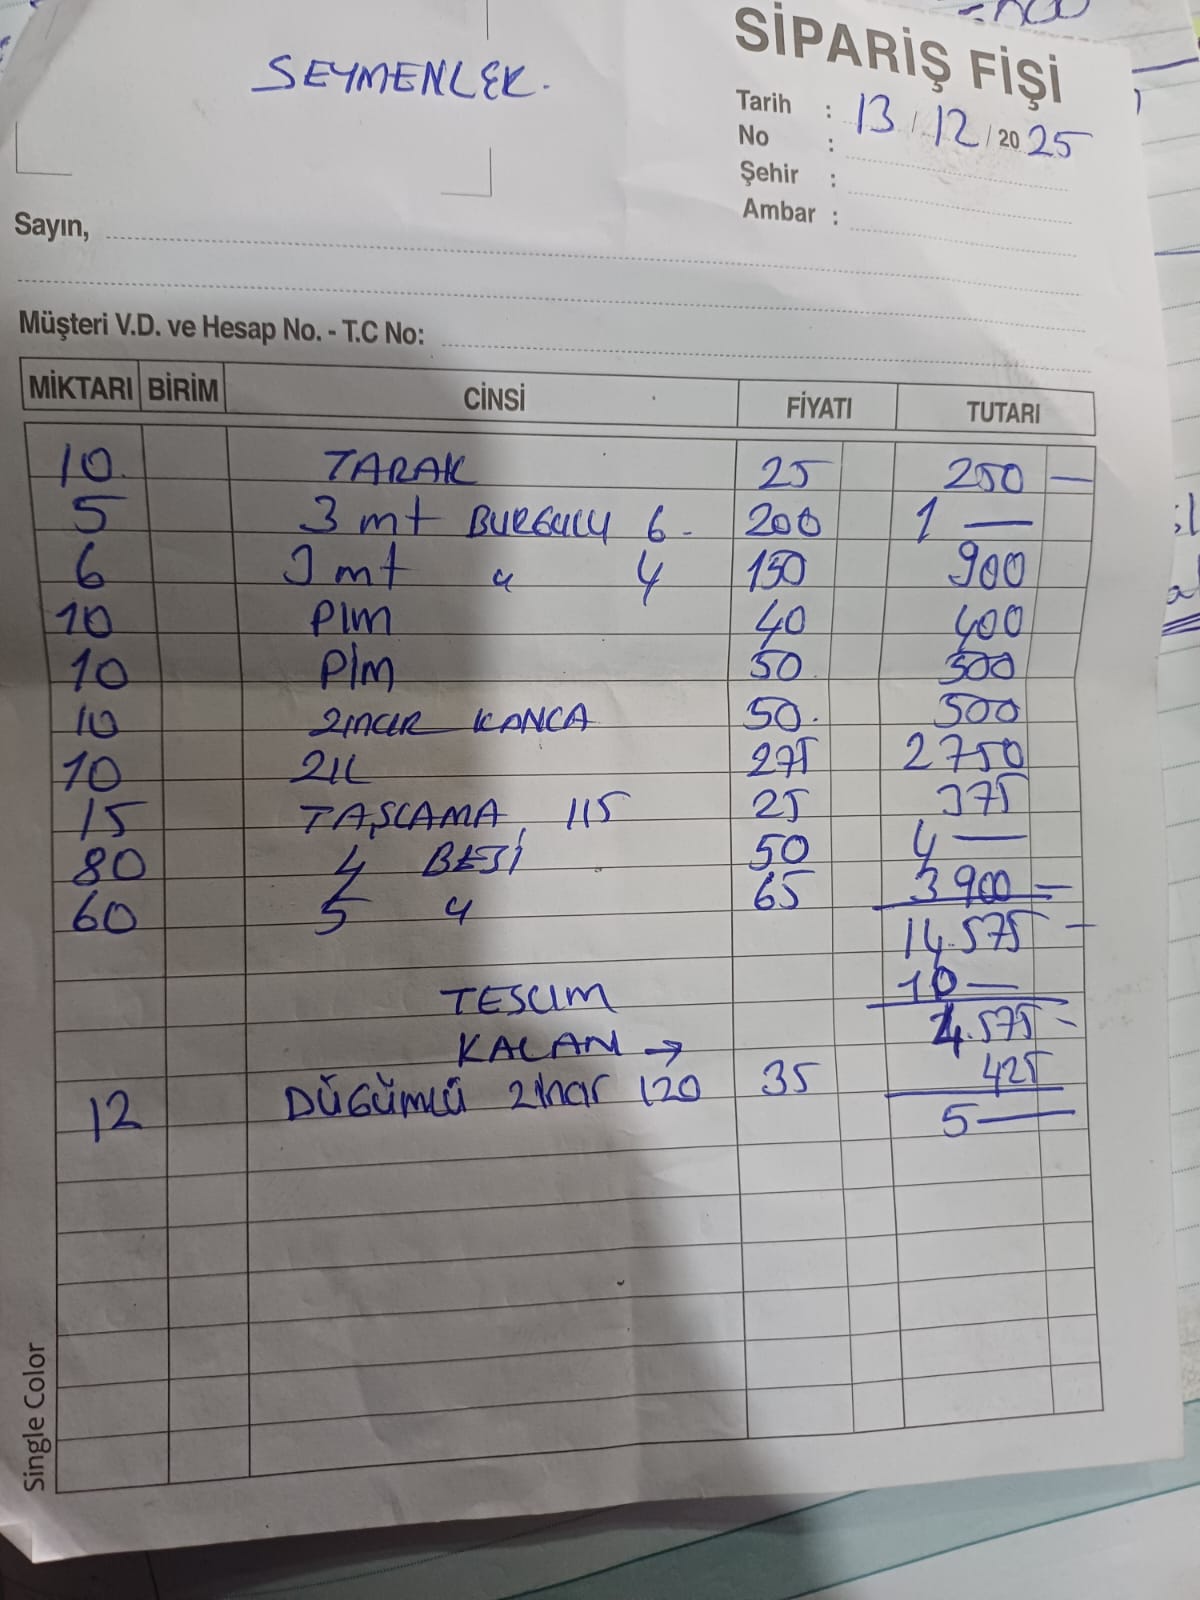 SİPARİŞ FİŞİ
SEYMENLER.
Tarih : 13 / 12 / 20 25
No :
Şehir :
Ambar :
Sayın,
Müşteri V.D. ve Hesap No. - T.C No:
MİKTARI BİRİM CİNSİ FİYATI TUTARI
10. TARAK 25 250 —
5 3 mt BURGULU 6 - 200 1 —
6 3 mt " 4 150 900
10 PIM 40 400
10 PIM 50. 500
10 ZINCIR KANCA 50. 500
10 ZIL 275 2750
15 TAŞLAMA, 115 25 375
80 4 BESİ 50 4 —
60 5 " 65 3900 —
14.575 —
TESLIM 10 —
KALAN → 4.575 -
12 DÜGÜMLÜ ZINCIR 120 35 425
5 —
Single Color